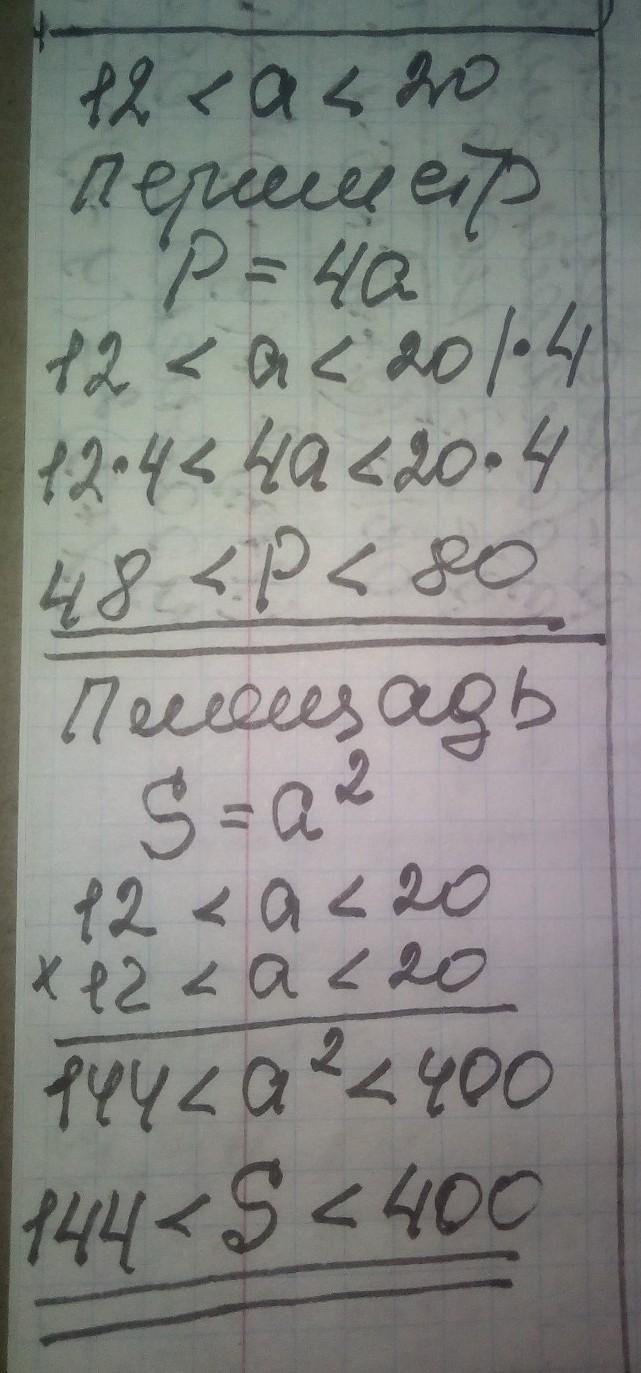 12 < a < 20
Периметр
P = 4a
12 < a < 20 |·4
12·4 < 4a < 20·4
48 < P < 80
Площадь
S = a²
12 < a < 20
× 12 < a < 20
144 < a² < 400
144 < S < 400